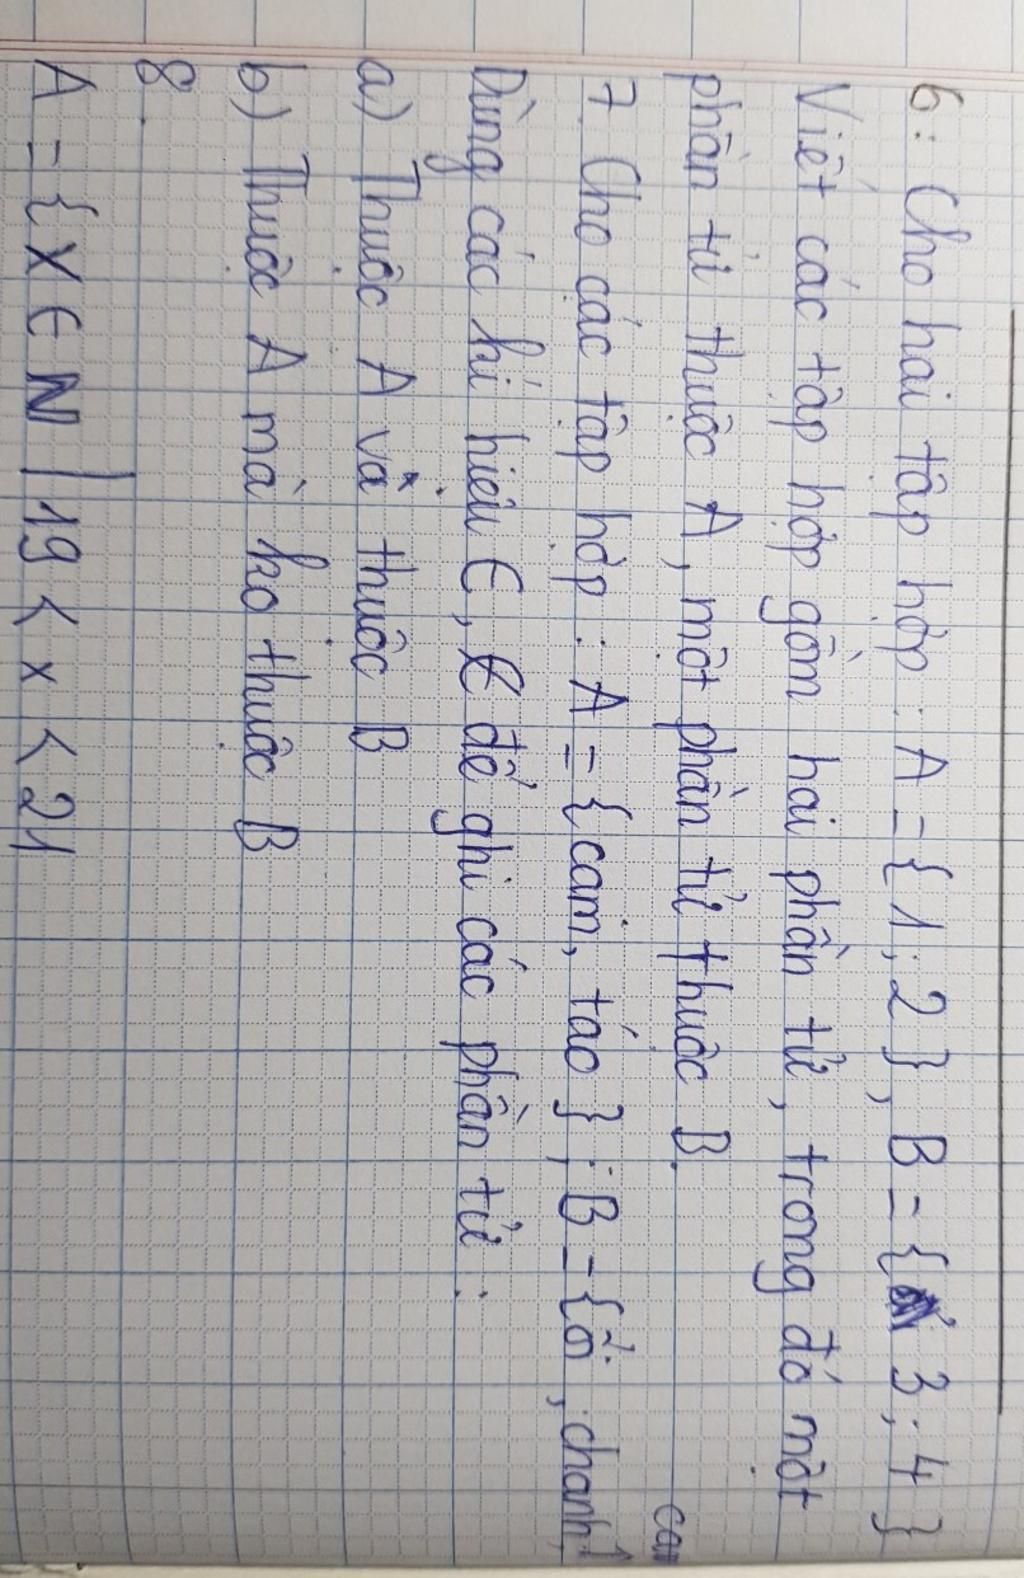 6: Cho hai tập hợp: A = {1; 2}, B = {3; 4}
Viết các tập hợp gồm hai phần tử, trong đó một
phần tử thuộc A, một phần tử thuộc B.
7. Cho các tập hợp: A = {cam, táo}; B = {ổi, chanh,
cam
Dùng các kí hiệu ∈, ∉ để ghi các phần tử:
a) Thuộc A và thuộc B
b) Thuộc A mà ko thuộc B
8.
A = {X ∈ N | 19 < x < 21